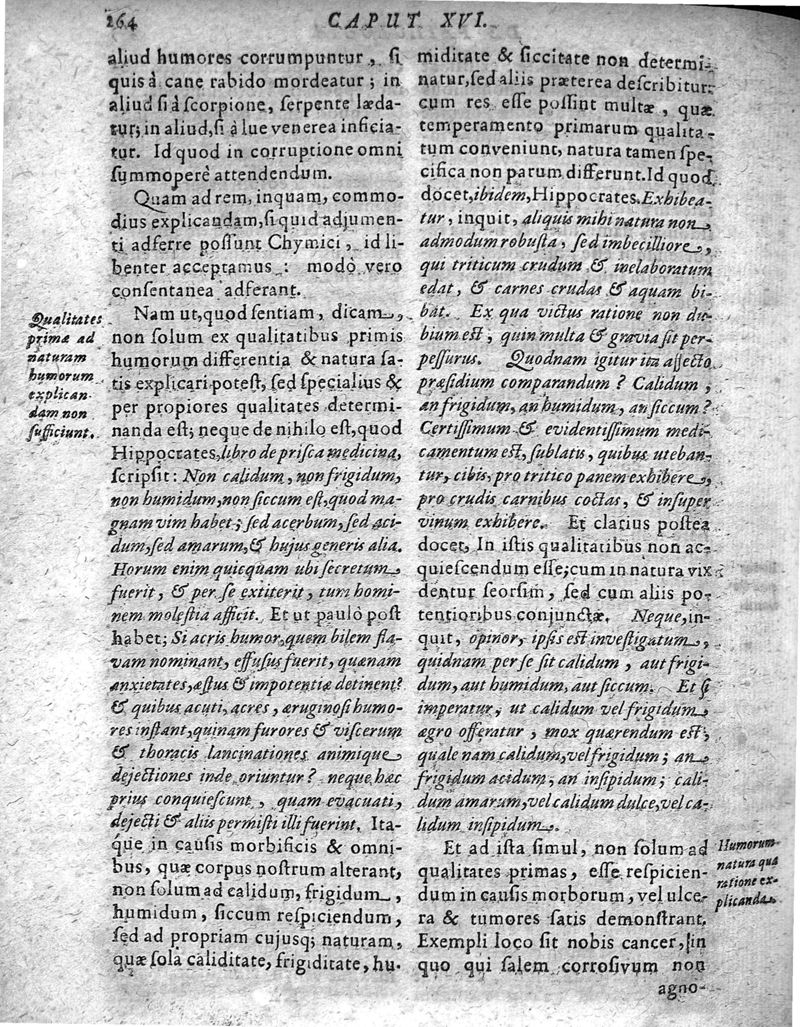 264
CAPUT XVI.
aliud humores corrumpuntur, si
quis à cane rabido mordeatur; in
aliud si à scorpione, serpente læda-
tur; in aliud, si à lue venerea inficia-
tur. Id quod in corruptione omni
summoperè attendendum.
Quam ad rem, inquam, commo-
dius explicandam, si quid adjumen-
ti adferre possunt Chymici, id li-
benter acceptamus: modò vero
consentanea adferant.
Qualitates
primæ ad
naturam
humorum
explican-
dam non
sufficiunt.
Nam ut, quod sentiam, dicam,
non solum ex qualitatibus primis
humorum differentia & natura sa-
tis explicari potest, sed specialius &
per propiores qualitates determi-
nanda est; neque de nihilo est, quod
Hippocrates, libro de prisca medicina,
scripsit: Non calidum, non frigidum,
non humidum, non siccum est, quod ma-
gnam vim habet; sed acerbum, sed aci-
dum, sed amarum, & hujus generis alia.
Horum enim quicquam ubi secretum
fuerit, & per se extiterit, tum homi-
nem molestia afficit. Et ut paulò post
habet; Si acris humor, quem bilem fla-
vam nominant, effusus fuerit, quænam
anxietates, æstus & impotentiæ detinent?
& quibus acuti, acres, æruginosi humo-
res instant, quinam furores & viscerum
& thoracis lancinationes animique
dejectiones inde oriuntur? neque hæc
prius conquiescunt, quam evacuati,
dejecti & aliis permisti illi fuerint. Ita-
que in causis morbificis & omni-
bus, quæ corpus nostrum alterant,
non solum ad calidum, frigidum,
humidum, siccum respiciendum,
sed ad propriam cujusq; naturam,
quæ sola caliditate, frigiditate, hu-
miditate & siccitate non determi-
natur, sed aliis præterea describitur:
cum res esse possint multæ, quæ
temperamento primarum qualita-
tum conveniunt, natura tamen spe-
cifica non parum differunt. Id quod
docet, ibidem, Hippocrates. Exhibea-
tur, inquit, aliquis mihi natura non
admodum robusta, sed imbecilliore,
qui triticum crudum & inelaboratum
edat, & carnes crudas & aquam bi-
bat. Ex qua victus ratione non du-
bium est, quin multa & gravia sit per-
pessurus. Quodnam igitur ita affecto
præsidium comparandum? Calidum,
an frigidum, an humidum, an siccum?
Certissimum & evidentissimum medi-
camentum est, sublatis, quibus uteban-
tur, cibis, pro tritico panem exhibere,
pro crudis carnibus coctas, & insuper
vinum exhibere. Et clarius postea
docet, In istis qualitatibus non ac-
quiescendum esse; cum in natura vix
dentur seorsim, sed cum aliis po-
tentioribus conjunctæ. Neque, in-
quit, opinor, ipsis est investigatum,
quidnam per se sit calidum, aut frigi-
dum, aut humidum, aut siccum. Et si
imperatur, ut calidum vel frigidum,
ægro offeratur, mox quærendum est,
quale nam calidum, vel frigidum; an
frigidum acidum; an insipidum; cali-
dum amarum, vel calidum dulce, vel ca-
lidum insipidum.
Et ad ista simul, non solum ad
qualitates primas, esse respicien-
dum in causis morborum, vel ulce-
ra & tumores satis demonstrant.
Exempli loco sit nobis cancer, in
quo qui salem corrosivum non
Humorum
natura qua
ratione ex-
plicanda.
agno-